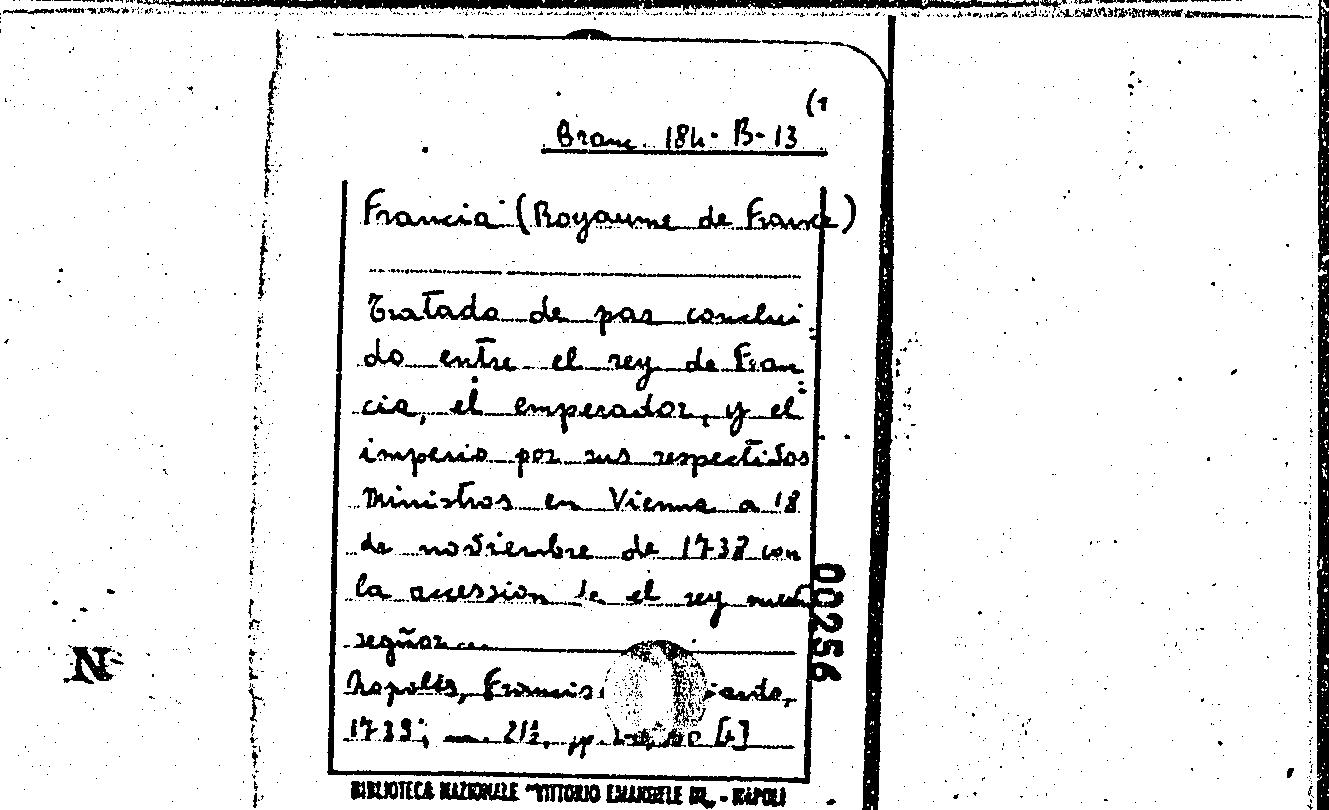 (1
Branc. 184-B-13
Francia (Royaume de France)
Tratado de paz conclui
do entre el rey de Fran
cia, el emperador, y el
imperio por sus respectivos
Ministros en Vienna a 18
de noviembre de 1738 con
la accession de el rey nuest
segñor
Napoles, Francis
1739; 21½, pp. [4]
00256
N
BIBLIOTECA NAZIONALE "VITTORIO EMANUELE III" - NAPOLI